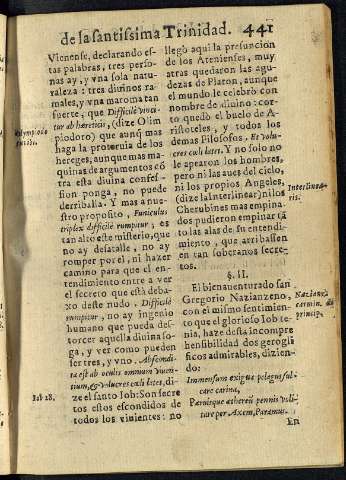 de la santissima Trinidad. 441
Vienense, declarando es-
tas palabras, tres perso-
nas ay, y vna sola natu-
raleza: tres diuinos ra-
males, y vna maroma tan
fuerte, que Difficilè vinci-
tur ab hæreticis, (dize Olim
piodoro) que aunq̃ mas
haga la proteruia de los
hereges, aunque mas ma-
quinas de argumentos cõ
tra esta diuina confes-
sion ponga, no puede
derriballa. Y mas a nue-
stro proposito, Funiculus
triplex difficilè rumpitur, es
tan alto este misterio, que
no ay desatalle, no ay
romper por el, ni hazer
camino para que el en-
tendimiento entre a ver
el secreto que está deba-
xo deste nudo: Difficilè
rumpitur, no ay ingenio
humano que pueda des-
torcer aquella diuina so-
ga, y ver como pueden
ser tres, y vno. Abscondi-
ta est ab oculis omnium viuen-
tium, & volucres cæli latet, di-
ze el santo Iob: Son secre
tos estos escondidos de
todos los viuientes: no
Iob 28.
llegò aqui la presuncion
de los Atenienses, muy
atras quedaron las agu-
dezas de Platon, aunque
el mundo le celebrò con
nombre de diuino: cor-
to quedò el buelo de A-
ristoteles, y todos los
demas Filosofos. Et volu-
cres cæli latet. Y no solo no
le apearon los hombres,
pero ni las aues del cielo,
ni los propios Angeles,
(dize la Interlinear) ni los
Cherubines mas empina
dos pudieron empinar tã
to las alas de su entendi-
miento, que arribassen
en tan soberanos secre-
tos.
Interlinea-
ris.
§. II.
El bienauenturado san
Gregorio Nazianzeno,
con el mismo sentimiento
que el glorioso Iob te-
nia, haze desta incompre
hensibilidad dos gerogli
ficos admirables, dizien-
do:
Immensum exigua pelagus sul-
care carina,
Paruique æthereü pennis voli-
tare per Axem, Paramus.
En